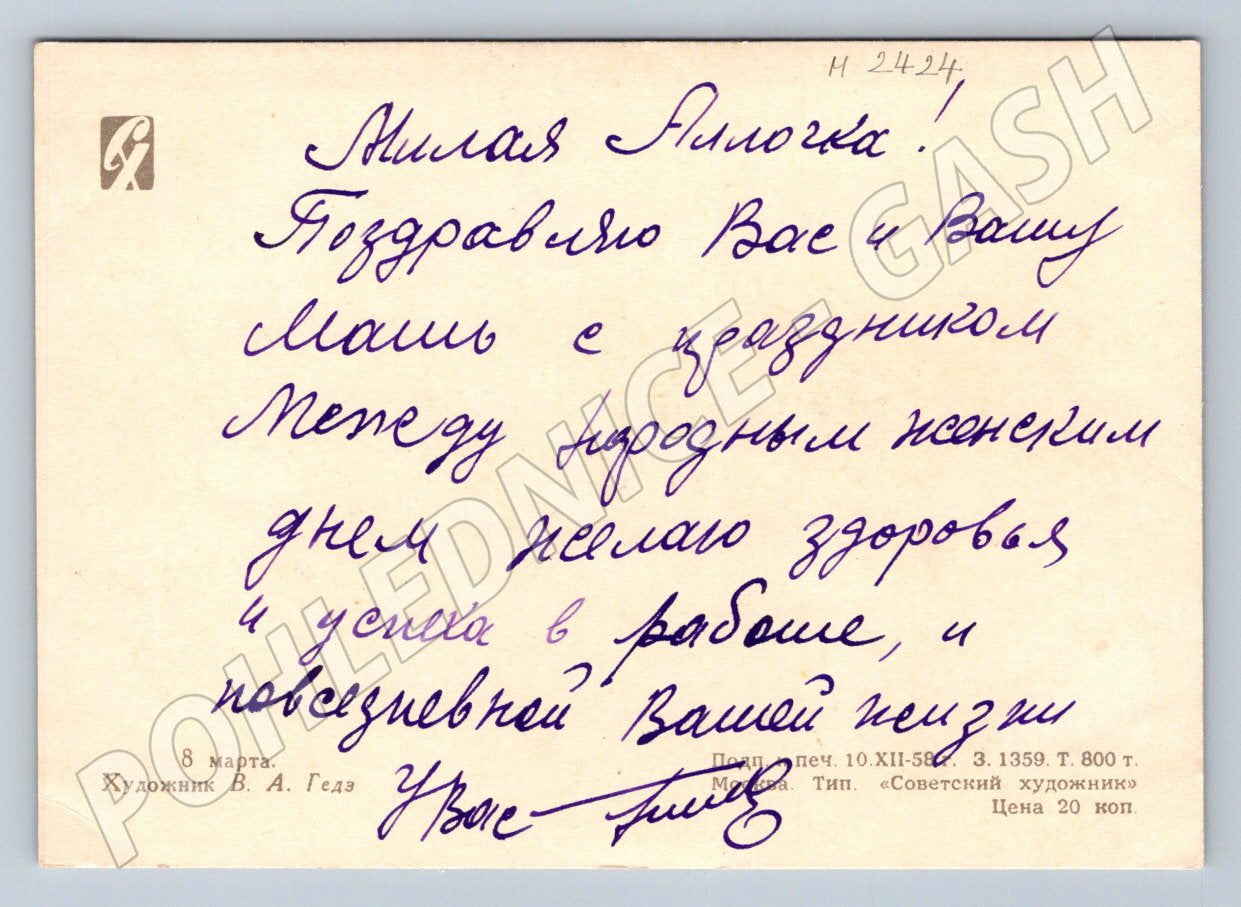 н 2424
Милая Аллочка!
Поздравляю Вас и Вашу
Мать с праздником
Между народным женским
днем желаю здоровья
и успеха в работе, и
повсезневной Вашей жизни
8 марта.
Художник В. А. Гедз
Подп. к печ. 10.XII-58 г. З. 1359. Т. 800 т.
Москва. Тип. «Советский художник»
Цена 20 коп.
POHLEDNICE - GASH